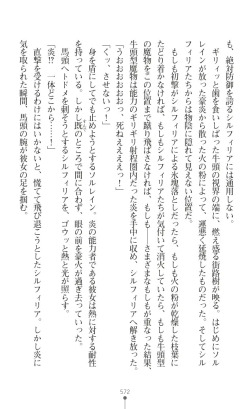 も、絶対防御を誇るシルフィリアには通用しない。
　ギリィッと歯を食いしばった牛頭の視界の端に、燃え盛る街路樹が映る。はじめにソル
レインが放った豪炎から散った火の粉によって、運悪く延焼したものだった。そしてシル
フィリアたちからは物陰に隠れて見えない位置だ。
　もしも初撃がシルフィリアによる氷塊落としだったら、もしも火の粉が乾燥した枝葉に
たどり着かなければ、もしもシルフィリアたちが気付いて消火していたら、もしも牛頭型
の魔物をこの位置まで蹴り飛ばさなければ、もしも――さまざまなもしもが重なった結果、
牛頭型魔物は能力のギリギリ射程圏内だった炎を手中に収め、シルフィリアへ解き放った。
「うおおおおおおっ、死ねええええっ！」
「くッ、させないっ！」
　身を盾にしてでも止めようとするソルレイン。炎の能力者である彼女は熱に対する耐性
を持っている。しかし既のところで間に合わず、眼の前を豪火が過ぎ去っていった。
　馬頭へトドメを刺そうとするシルフィリアを、ゴウッと熱と光が照らす。
「炎!?　一体どこから……！」
　直撃を受けるわけにはいかないと、慌てて飛び退こうとしたシルフィリア。しかし炎に
気を取られた瞬間、馬頭の腕が彼女の足を掴む。
572